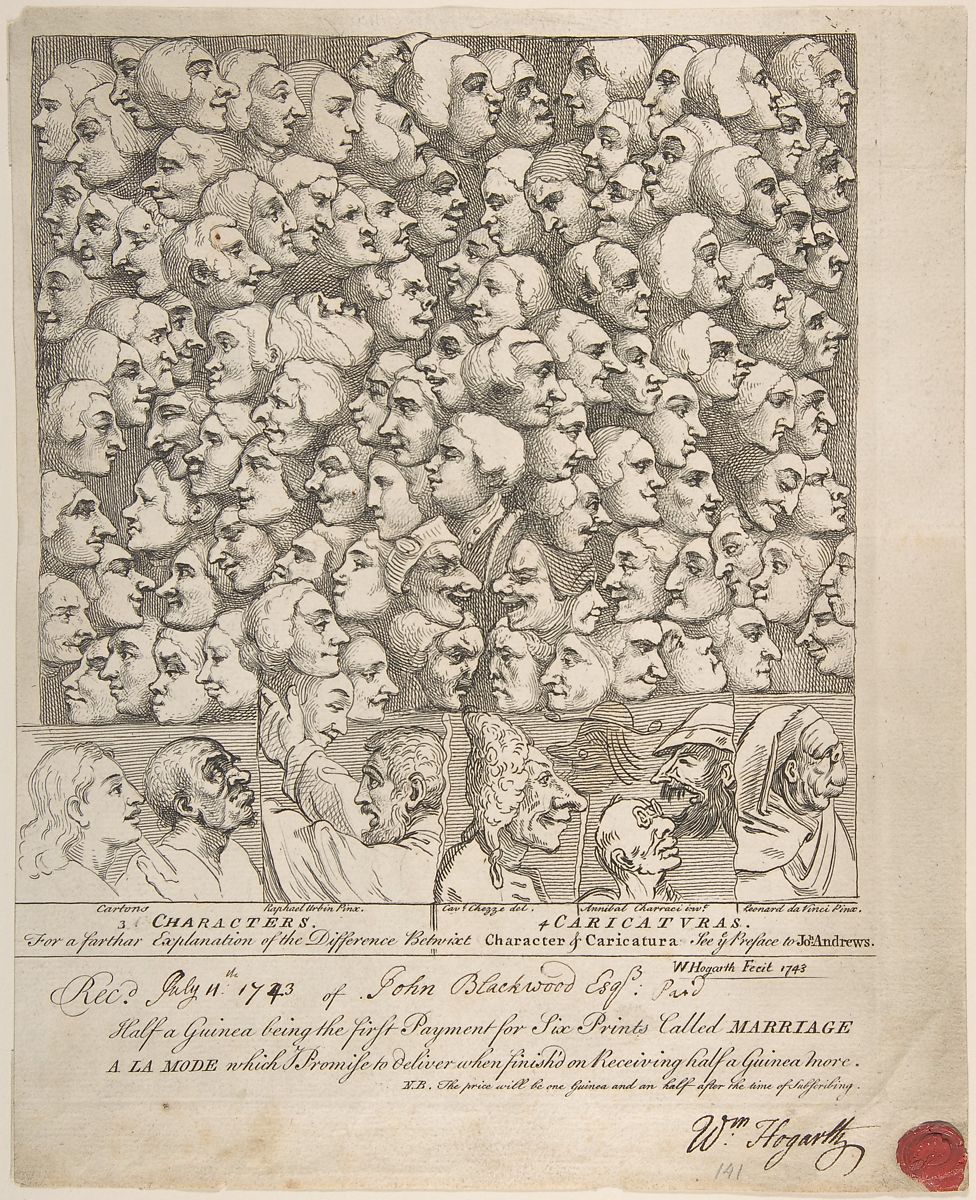 Cartons Raphael Urbin Pinx. Cav.r Chezze del. Annibal Charraci inv.t Leonard da Vinci Pinx.
3 CHARACTERS. 4 CARICATVRAS.
For a farthar Explanation of the Difference Betwixt Character & Caricatura See ye Preface to Jos. Andrews.
W Hogarth Fecit 1743
Rec.d July 11.th 1743 of John Blackwood Esq.r Paid
Half a Guinea being the first Payment for Six Prints Called MARRIAGE
A LA MODE which I Promise to deliver when finish'd on Receiving half a Guinea more.
N.B. The price will be one Guinea and an half after the time of Subscribing.
W.m Hogarth
141